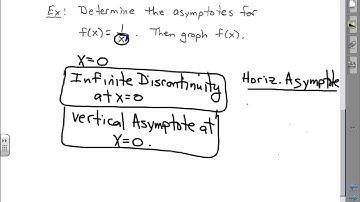 Ex: Determine the asymptotes for
f(x) = 1/x. Then graph f(x).
x=0
Infinite Discontinuity
at x=0
Vertical Asymptote at
x=0.
Horiz. Asymptote